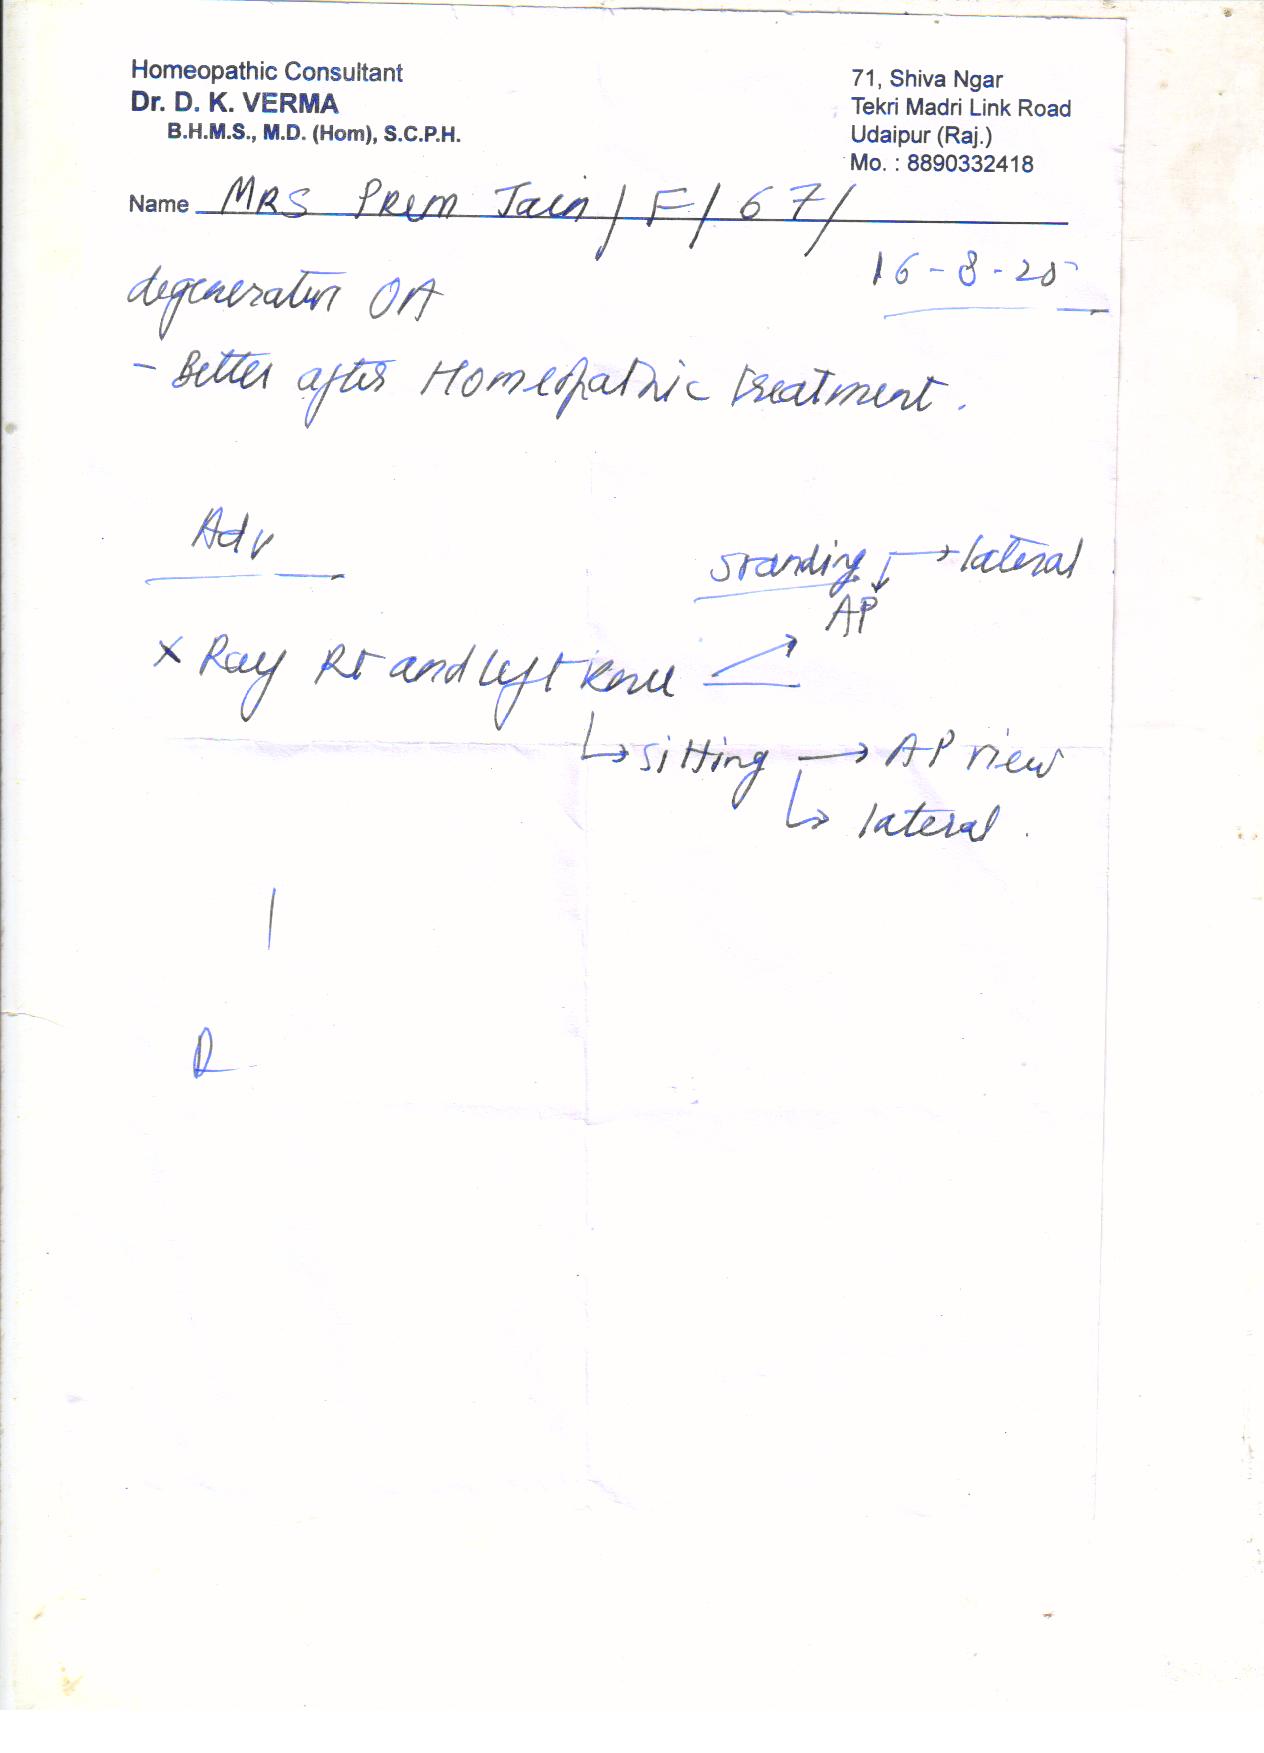 Homeopathic Consultant
Dr. D. K. VERMA
B.H.M.S., M.D. (Hom), S.C.P.H.
71, Shiva Ngar
Tekri Madri Link Road
Udaipur (Raj.)
Mo. : 8890332418
Name MRS Prem Jain / F / 67 /
16-8-20
degeneration OA
- Better after Homeopathic treatment.
Adv
standing → lateral
AP
X Ray Rt and left knee
sitting → AP view
lateral.